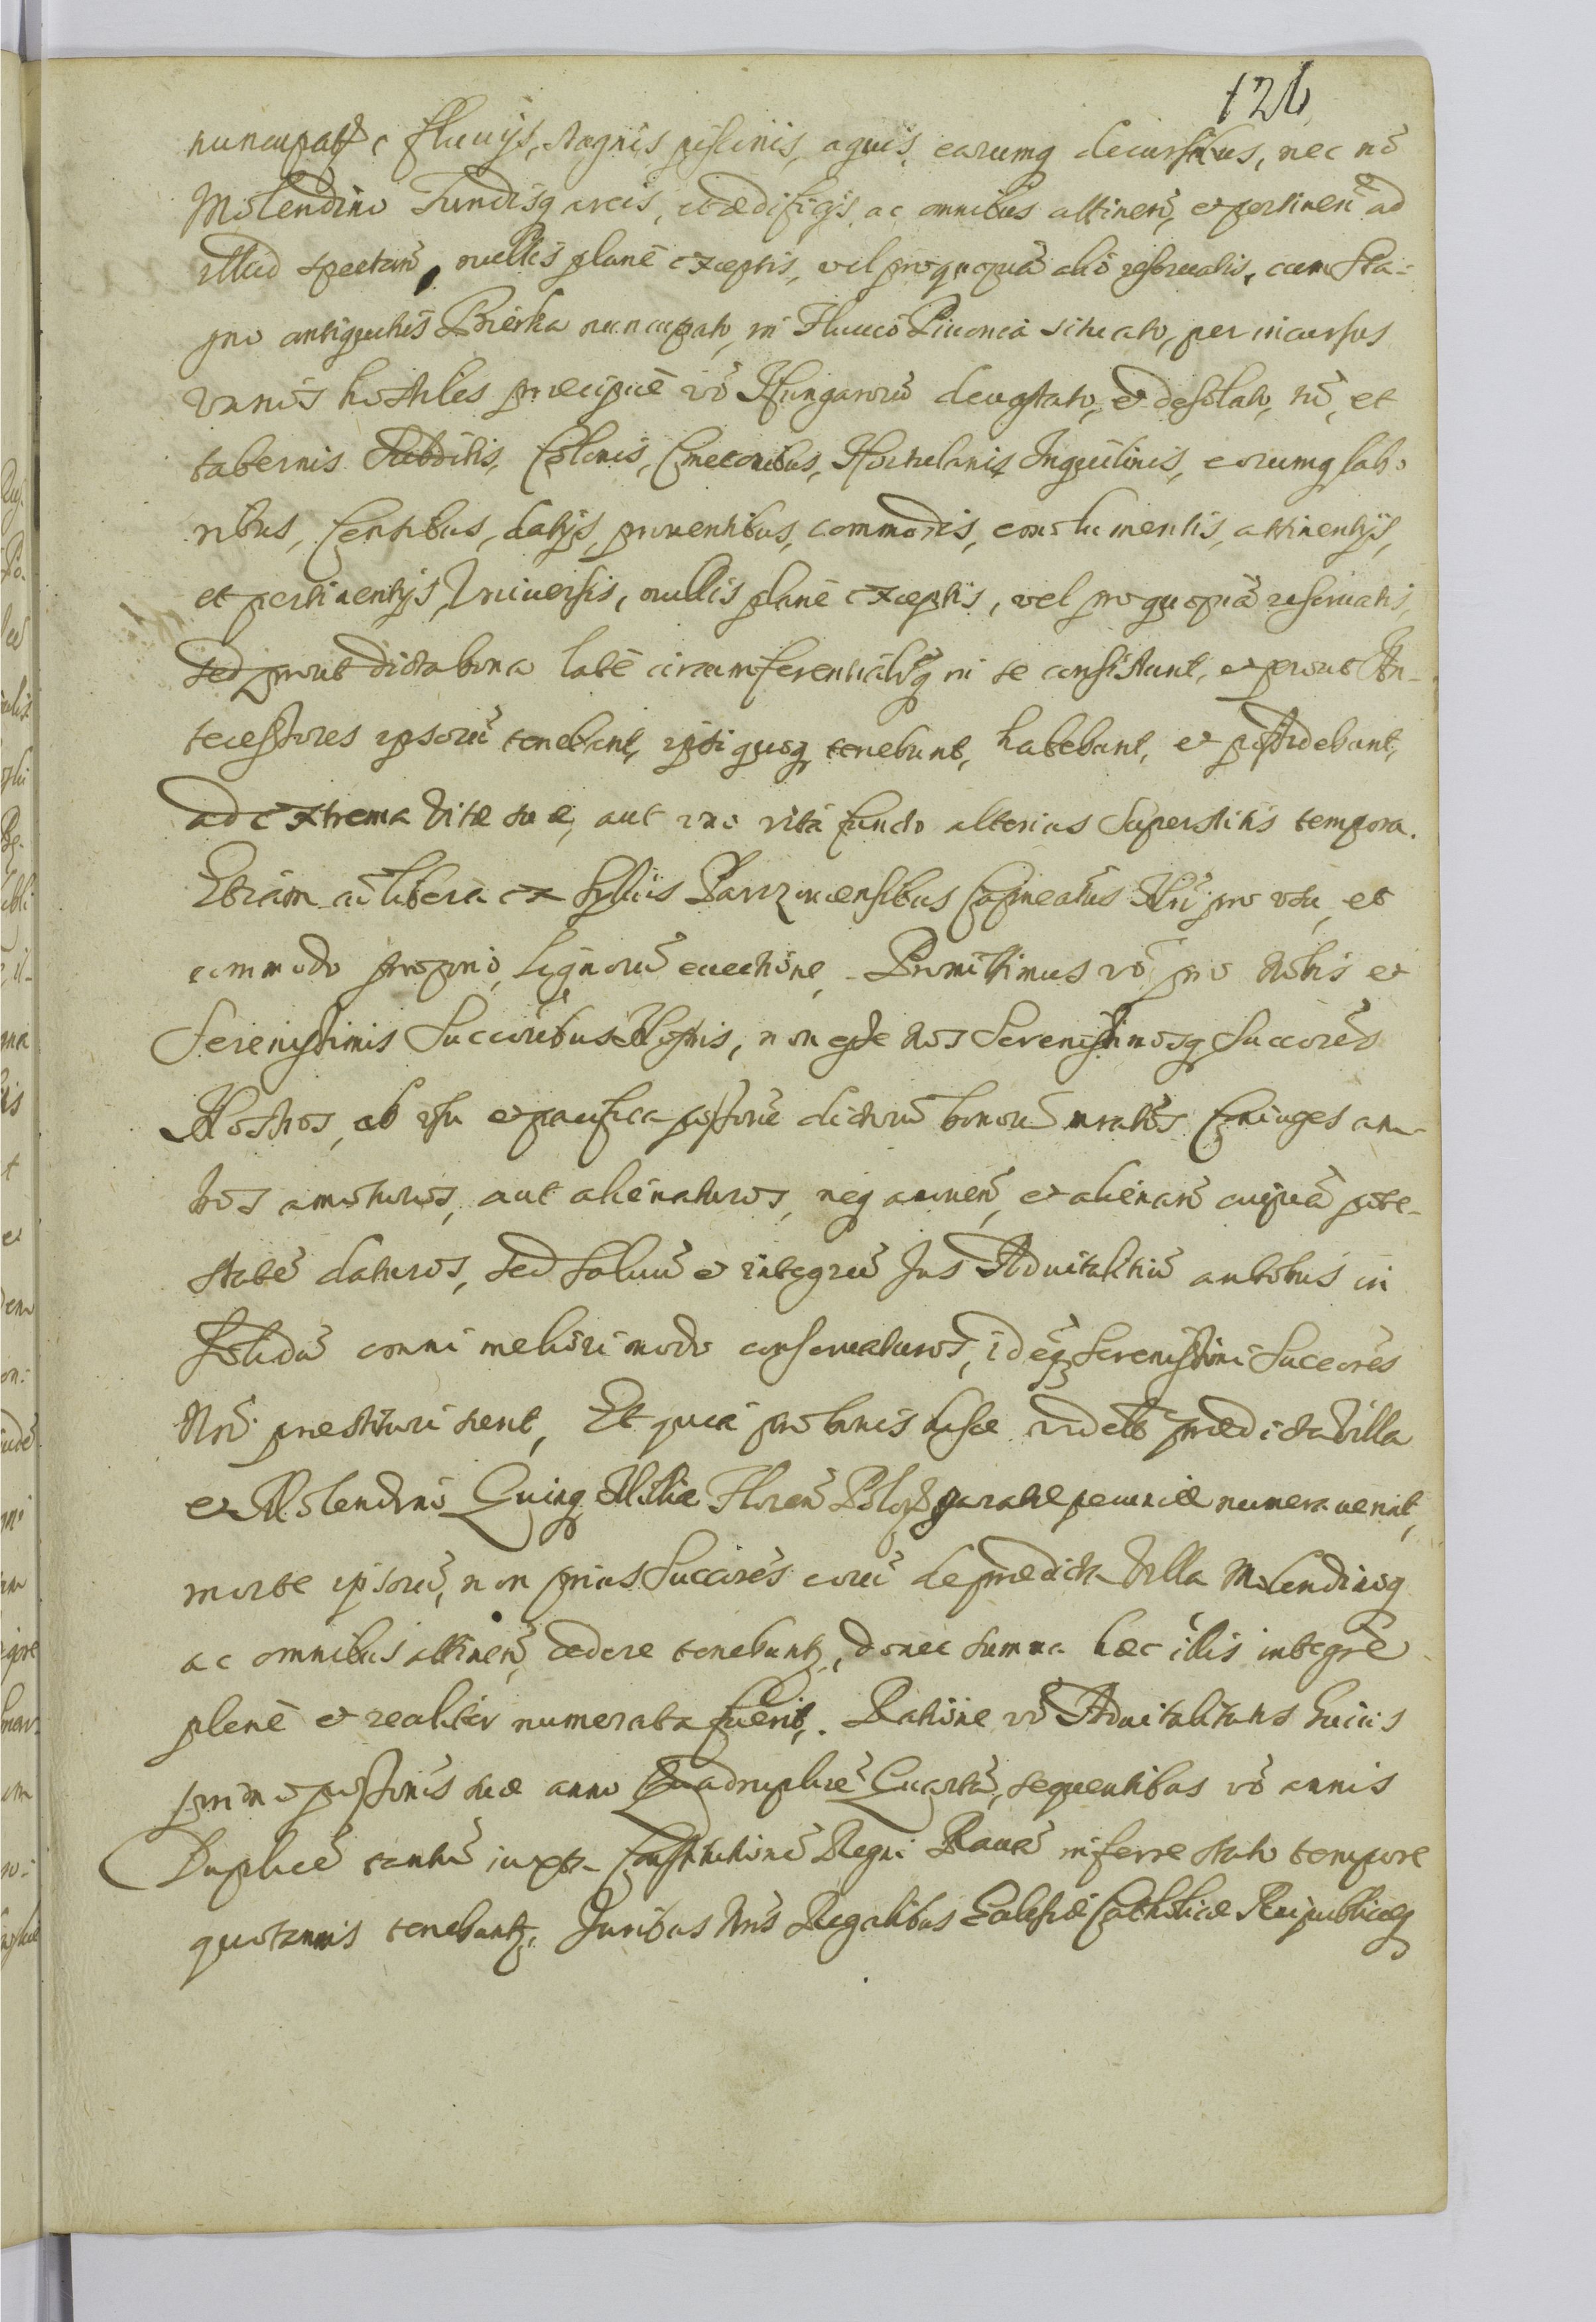 126
nuncupatis, fluuijs, stagnis piscinis, aquis, earumq decursibus, nec nõ
Molendino Fundisq areis, et ædificijs, ac omnibus attineñ, et pertineñ ad
illud spectañ, nullis planè exceptis, vel pro quopiã alio reseruatis, cum sta-
gno antiquitùs Bierka nuncupato, in Fluuio Piuonia situato, per incursus
varios hostiles præcipuè vò Hungarorũ deuastato, et desolato, tũ, et
tabernis Subditis, Colonis, Cmetonibus, Hortulanis Inquilinis, eorumq labo
ribus, Censibus, datijs, prouentibus, commodis, emolumentis, attinentijs,
et pertinentijs Vniuersis, nullis planè exceptis, vel pro quopiã reseruatis,
sed prout dicta bona latè circumferentialitèrq in se consistunt, et prout An-
tecessores ipsorũ tenebant, ipsi quoq tenebunt, habebant, et possidebant,
ad extrema Vitæ suæ, aut uno vitâ functo alterius superstitis tempora.
Etiam cũ libera ex Syluis Parczouiensibus Capineatus Nri pro usu, et
commodo proprio, lignorũ euectione, Promittimus vò pro Nobis et
Serenissimis Succoribus Nostris, non esse nos Serenissimosq Succores
Nostros, ab usu et pacifica possone dictorũ bonorũ mratos Coniuges am-
bos amoturos, aut alienaturos, neq amoueñ, et alienañ cuipiã pote-
statẽ daturos, sed saluũ et integrũ Jus Aduitalitiũ ambobus in
solidũ omni meliori modo conseruaturos, id eqz Serenissimi Succores
Nri prestituri sent, Et quia pro bonis hisce videlt prædicta Villa
et Molendino Quinq Millia Floreñ Poloñ paratæ pecuniæ numerauerint,
morte ipsorũ, non prius Succores eorũ de prædicta Villa Molendinoq
ac omnibus attineñ, cedere tenebuntr, donec summa hæc illis integrè
plenè et realiter numerata fuerit. Ratione vò Aduitalitatis huius
primo possonis suæ anno Quadruplicẽ Quartã, sequentibus vò annis
Duplicẽ tantũ iuxta Constitutionẽ Regni Rauã inferre stato tempore
quotannis tenebuntr. Juribus Nris Regalibus Ecclesiæ Catholicæ Reipublicæq